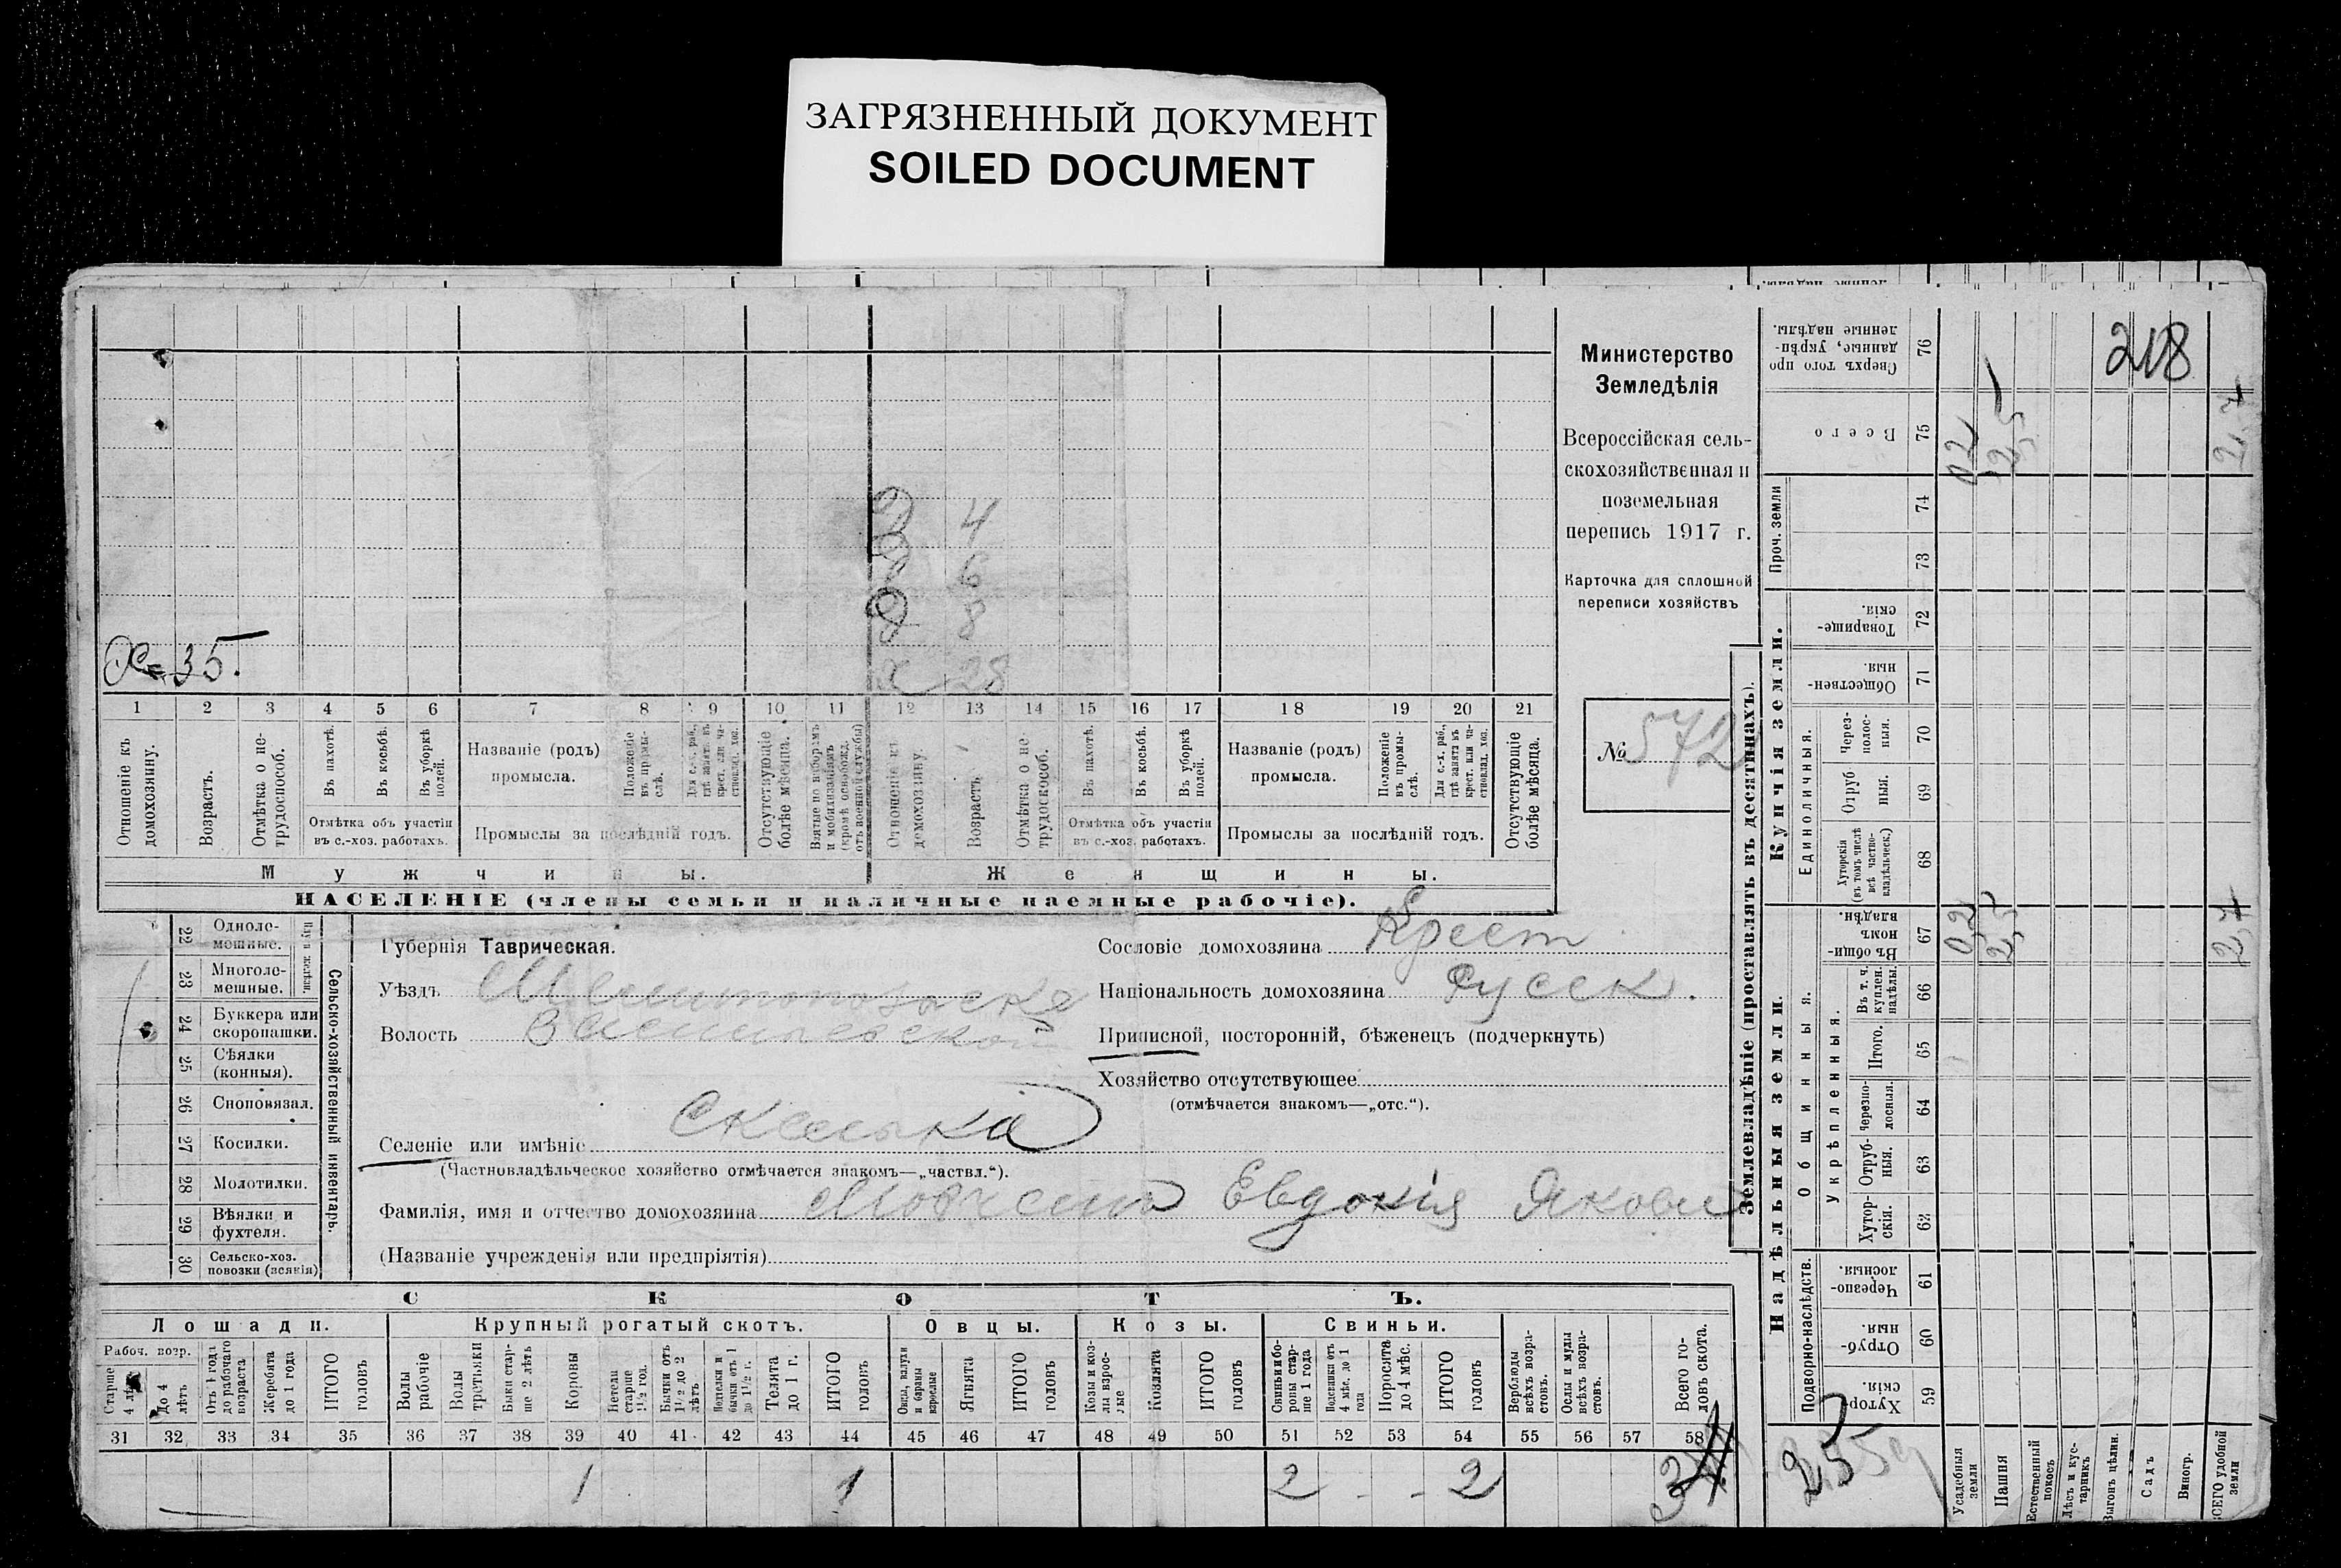 ЗАГРЯЗНЕННЫЙ ДОКУМЕНТ
SOILED DOCUMENT
4
6
8
х 28
Х 35.
1 2 3 4 5 6 7 8 9 10 11 12 13 14 15 16 17 18 19 20 21
Отношеніе къ домохозяину.
Возрастъ.
Отмѣтка о нетрудоспособ.
Въ пахотѣ.
Въ косьбѣ.
Въ уборкѣ полей.
Отмѣтка объ участіи
въ с.-хоз. работахъ.
Названіе (родъ)
промысла.
Положеніе въ промыслѣ.
Для с.-х. раб., гдѣ занятъ въ крест. или частновлад. хоз.
Промыслы за послѣдній годъ.
Отсутствующіе болѣе мѣсяца.
Взятые по наборамъ и мобилизаціямъ (кромѣ освобожд. отъ военной службы)
Отношеніе къ домохозяину.
Возрастъ
Отмѣтка о нетрудоспособ.
Въ пахотѣ.
Въ косьбѣ.
Въ уборкѣ полей.
Отмѣтка объ участіи
въ с.-хоз. работахъ.
Названіе (родъ)
промысла.
Положеніе въ промыслѣ.
Для с.-х. раб., гдѣ занята въ крест. или частновлад. хоз.
Промыслы за послѣдній годъ.
Отсутствующіе болѣе мѣсяца.
Мужчины.
Женщины.
НАСЕЛЕНІЕ (члены семьи и наличные наемные рабочіе).
Министерство
Земледѣлія
Всероссійская сель-
скохозяйственная и
поземельная
перепись 1917 г.
Карточка для сплошной
переписи хозяйствъ
№ 572
22 Одноле-
мешные.
23 Многоле-
мешные.
24 Буккера или
скоропашки.
25 Сѣялки
(конныя).
26 Сноповязал.
27 Косилки.
28 Молотилки.
29 Вѣялки и
фухтеля.
30 Сельско-хоз.
повозки (всякія)
Сельско-хозяйственный инвентарь.
Губернія Таврическая.
Уѣздъ
Волость Васильевской
Селеніе или имѣніе Скелька
(Частновладѣльческое хозяйство отмѣчается знакомъ—„частвл.“).
Фамилія, имя и отчество домохозяина Евдокія Яковл
(Названіе учрежденія или предпріятія)
Сословіе домохозяина Крест
Національность домохозяина Русск.
Приписной, посторонній, бѣженецъ (подчеркнуть)
Хозяйство отсутствующее
(отмѣчается знакомъ—„отс.“).
СКОТЪ.
Лошади.
Крупный рогатый скотъ.
Овцы.
Козы.
Свиньи.
Рабоч. возр.
Старше 4 лѣтъ
До 4 лѣтъ
Отъ 1 года до рабочаго возраста
Жеребята до 1 года
ИТОГО головъ
Волы рабочіе
Волы третьяки
Быки старше 2 лѣтъ
Коровы
Нетели старше 1½ год.
Бычки отъ 1½ до 2 лѣтъ
Нетелки и бычки отъ 1 до 1½ г.
Телята до 1 г.
ИТОГО головъ
Овцы, валухи и бараны взрослые
Ягнята
ИТОГО головъ
Козы и козлы взрослые
Козлята
ИТОГО головъ
Свиньи и боровы старше 1 года
Подсвинки отъ 4 мѣс. до 1 года
Поросята до 4 мѣс.
ИТОГО головъ
Верблюды всѣхъ возрастовъ.
Ослы и мулы всѣхъ возрастовъ.
Всего головъ скота.
31 32 33 34 35 36 37 38 39 40 41 42 43 44 45 46 47 48 49 50 51 52 53 54 55 56 57 58
1 1 2 - - 2 3
Землевладѣніе (проставлять въ десятинахъ).
Надѣльныя земли.
Купчія земли.
Проч. земли
Подворно-наслѣдств.
Общинныя.
Укрѣпленныя.
Единоличныя.
Хуторскія. 59
Отрубныя. 60
Черезполосныя. 61
Хуторскія. 62
Отрубныя. 63
Черезполосныя. 64
Итого. 65
Въ т. ч. куплен. надѣлы. 66
Въ общинномъ владѣн. 67
Хуторскія (въ томъ числѣ всѣ частновладѣльческ.) 68
Отрубныя. 69
Черезполосныя. 70
Общественныя. 71
Товарищескія. 72
73
74
Всего 75
Сверхъ того проданные, укрѣпленные надѣлы. 76
0,2 2,5 2,7
0,2 2,5 2,7
218
Усадебныя земли
Пашня
Естественный покосъ
Лѣсъ и кустарникъ
Выгонъ цѣлин.
Садъ
Виногр.
ВСЕГО удобной земли